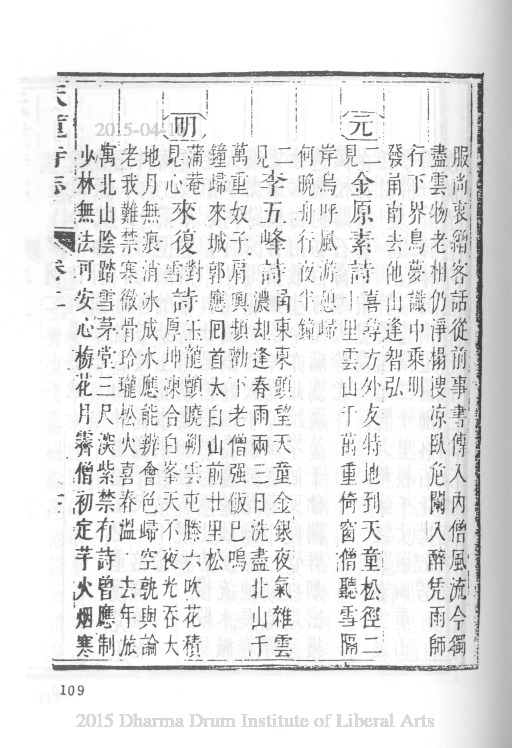 服尚衷猶客話從前事書傳入內僧風流今獨
盡雲物老相仍淨榻搜凉臥危闌入醉凭雨師
行下界鳥夢識中乘明
發甬南去他山逢智弘
元
二金原素詩喜尋方外友特地到天童松徑二
見 十里雲山千萬重倚窗僧聽雪隔
岸鳥呼風游憩歸
何晚舟行夜半鐘
二李五峰詩甬東東頭望天童金銀夜氣雜雲
見 濃却逢春雨兩三日洗盡北山千
萬重奴子屑輿煩勸下老僧强飯巳鳴
鐘歸來城郭應囘首太白山前廿里松
明
蒲菴來復對雪詩玉龍顫曉朔雲屯滕六吹花積
見心 厚坤凍合白峯天不夜光吞大
地月無痕消冰成水應能辦會色歸空孰與論
老我難禁寒徹骨玲瓏松火喜春溫 去年旅
寓北山陰踏雪茅堂三尺深紫禁有詩曾應制
少林無法可安心梅花月霽僧初定芋火烟寒
天童寺志 卷二
109
2015-04-1
2015 Dharma Drum Institute of Liberal Arts